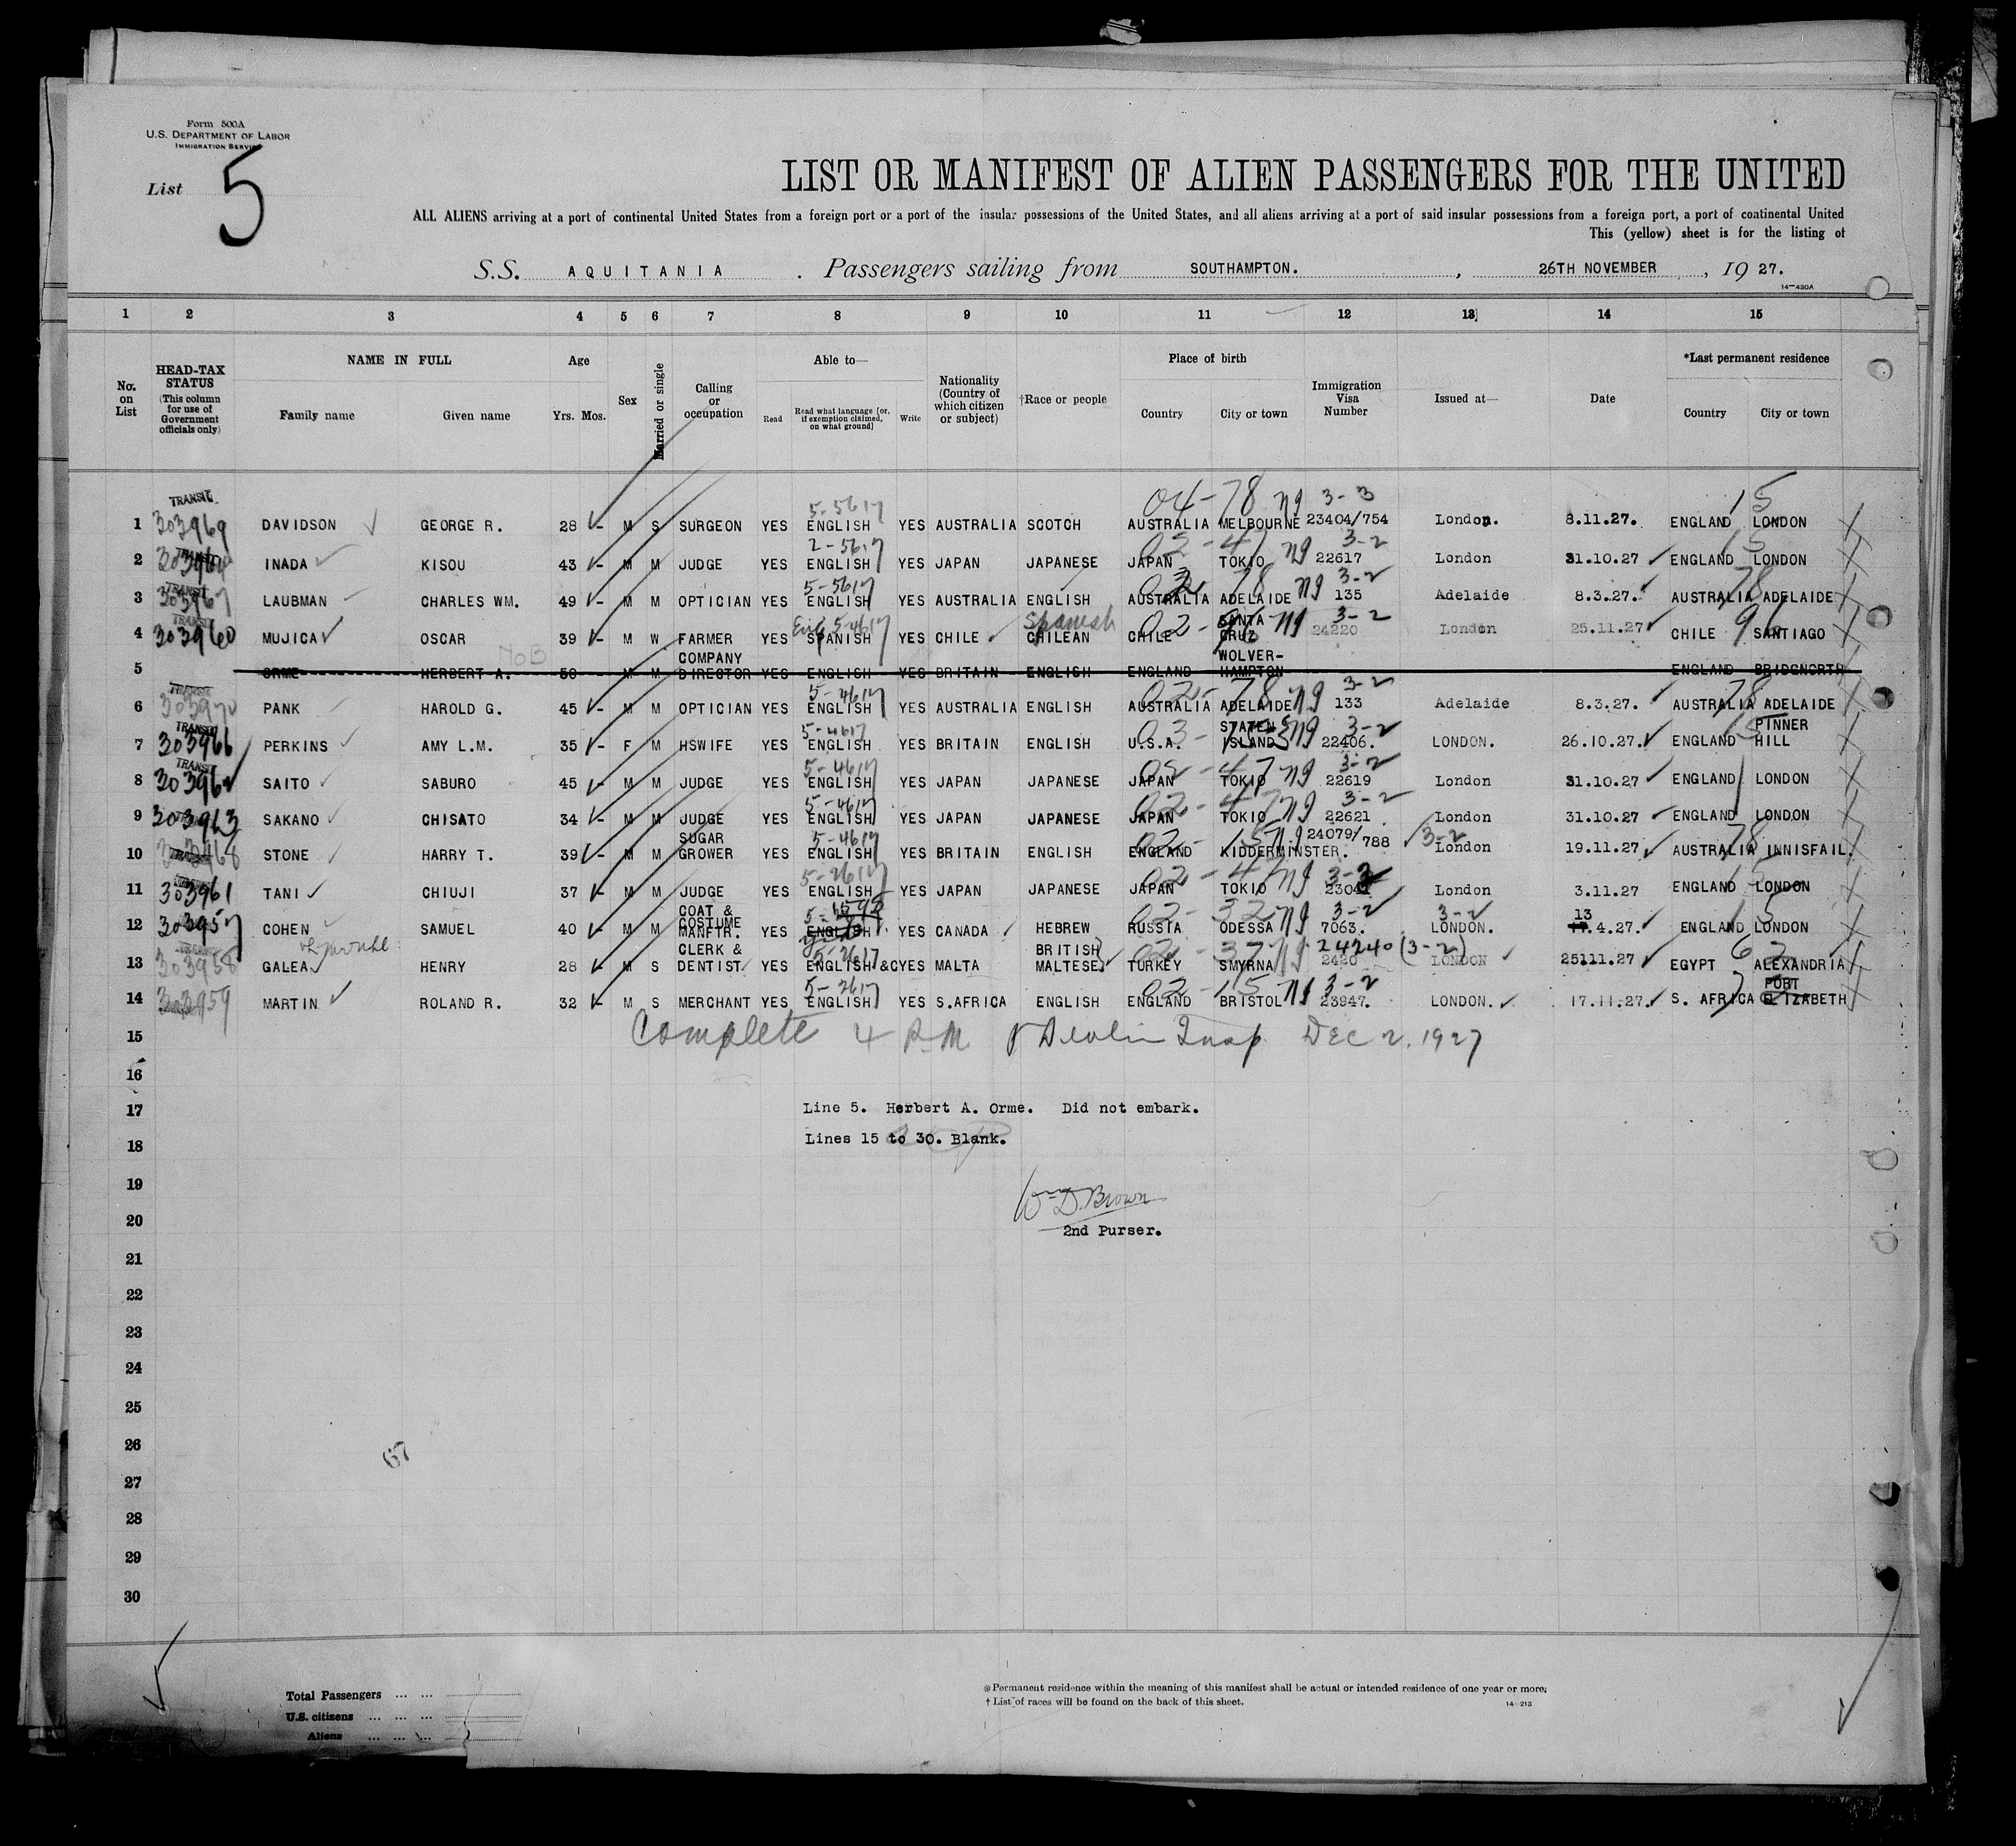 Form 500A
U.S. DEPARTMENT OF LABOR
IMMIGRATION SERVICE
List 5
LIST OR MANIFEST OF ALIEN PASSENGERS FOR THE UNITED
ALL ALIENS arriving at a port of continental United States from a foreign port or a port of the insular possessions of the United States, and all aliens arriving at a port of said insular possessions from a foreign port, a port of continental United
This (yellow) sheet is for the listing of
S.S. AQUITANIA. Passengers sailing from SOUTHAMPTON. , 26TH NOVEMBER , 19 27.
14—430A
1 2 3 4 5 6 7 8 9 10 11 12 13 14 15
No. on List
HEAD-TAX STATUS (This column for use of Government officials only)
NAME IN FULL
Family name Given name
Age
Yrs. Mos.
Sex
Married or single
Calling or occupation
Able to—
Read Read what language [or, if exemption claimed, on what ground] Write
Nationality (Country of which citizen or subject)
†Race or people
Place of birth
Country City or town
Immigration Visa Number
Issued at—
Date
*Last permanent residence
Country City or town
TRANSIT 5-5617 04-78 NJ 3-3 15
1 303969 DAVIDSON GEORGE R. 28 - M S SURGEON YES ENGLISH YES AUSTRALIA SCOTCH AUSTRALIA MELBOURNE 23404/754 London. 8.11.27. ENGLAND LONDON
2-5617 02-47 NJ 3-2 15
2 INADA KISOU 43 - M M JUDGE YES ENGLISH YES JAPAN JAPANESE JAPAN TOKIO 22617 London 31.10.27 ENGLAND LONDON
TRANSIT 5-5617 78 NJ 3-2 78
3 303967 LAUBMAN CHARLES WM. 49 - M M OPTICIAN YES ENGLISH YES AUSTRALIA ENGLISH AUSTRALIA ADELAIDE 135 Adelaide 8.3.27. AUSTRALIA ADELAIDE
TRANSIT Eng 5-4617 Spanish 02-96 NJ 3-2 96
4 303960 MUJICA OSCAR 39 - M W FARMER YES SPANISH YES CHILE CHILEAN CHILE SANTA CRUZ 24220 London 25.11.27 CHILE SANTIAGO
5 ORME HERBERT A. 50 M M COMPANY DIRECTOR YES ENGLISH YES BRITAIN ENGLISH ENGLAND WOLVER-HAMPTON ENGLAND BRIDGNORTH
TRANSIT 5-4617 02-78 NJ 3-2 78
6 303970 PANK HAROLD G. 45 - M M OPTICIAN YES ENGLISH YES AUSTRALIA ENGLISH AUSTRALIA ADELAIDE 133 Adelaide 8.3.27. AUSTRALIA ADELAIDE
TRANSIT 5-4617 03- NJ 3-2 15
7 303966 PERKINS AMY L.M. 35 - F M HSWIFE YES ENGLISH YES BRITAIN ENGLISH U.S.A. STATEN ISLAND 22406. LONDON. 26.10.27. ENGLAND PINNER HILL
TRANSIT 5-4617 02-47 NJ 3-2
8 303962 SAITO SABURO 45 - M M JUDGE YES ENGLISH YES JAPAN JAPANESE JAPAN TOKIO 22619 London 31.10.27 ENGLAND LONDON
5-4617 02-47 NJ 3-2
9 303963 SAKANO CHISATO 34 - M M JUDGE YES ENGLISH YES JAPAN JAPANESE JAPAN TOKIO 22621 London 31.10.27 ENGLAND LONDON
5-4617 02-15 NJ 3-2 78
10 TRANSIT STONE HARRY T. 39 - M M SUGAR GROWER YES ENGLISH YES BRITAIN ENGLISH ENGLAND KIDDERMINSTER. 24079/788 London 19.11.27 AUSTRALIA INNISFAIL.
5-2617 02-47 NJ 15
11 303961 TANI CHIUJI 37 - M M JUDGE YES ENGLISH YES JAPAN JAPANESE JAPAN TOKIO London 3.11.27 ENGLAND LONDON
02-32 NJ 3-2 3-2 13 15
12 303957 COHEN SAMUEL 40 - M M COAT & COSTUME MANFTR. YES ENGLISH YES CANADA HEBREW RUSSIA ODESSA 7063. LONDON. 4.27. ENGLAND LONDON
5-2617 02-37 NJ 24240 (3-2) 62
13 303958 GALEA HENRY 28 - M S CLERK & DENTIST YES ENGLISH &C YES MALTA BRITISH MALTESE TURKEY SMYRNA 2420 LONDON 25111.27 EGYPT ALEXANDRIA
5-2617 02-15 NJ 3-2
14 303959 MARTIN ROLAND R. 32 - M S MERCHANT YES ENGLISH YES S.AFRICA ENGLISH ENGLAND BRISTOL 23947. LONDON. 17.11.27. S. AFRICA PORT ELIZABETH
15 Complete 4 P.M. Devlin Insp. Dec 2, 1927
16
17 Line 5. Herbert A. Orme. Did not embark.
18 Lines 15 to 30. Blank.
19 Wm D. Brown
20 2nd Purser.
21
22
23
24
25
26
67
27
28
29
30
Total Passengers ... ...
U.S. citizens ... ... ...
Aliens ... ... ...
*Permanent residence within the meaning of this manifest shall be actual or intended residence of one year or more.
† List of races will be found on the back of this sheet. 14—213